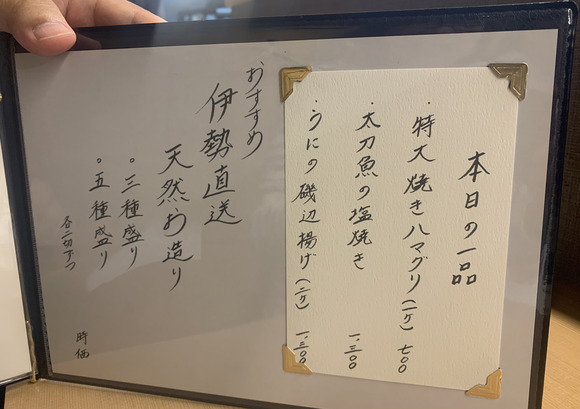 本日の一品
・特大焼きハマグリ(一ケ) 七〇〇
・太刀魚の塩焼き 一、三〇〇
・うにの磯辺揚げ(二ケ) 一、三〇〇
おすすめ
伊勢直送
天然お造り
。三種盛り
。五種盛り
各二切ずつ
時価